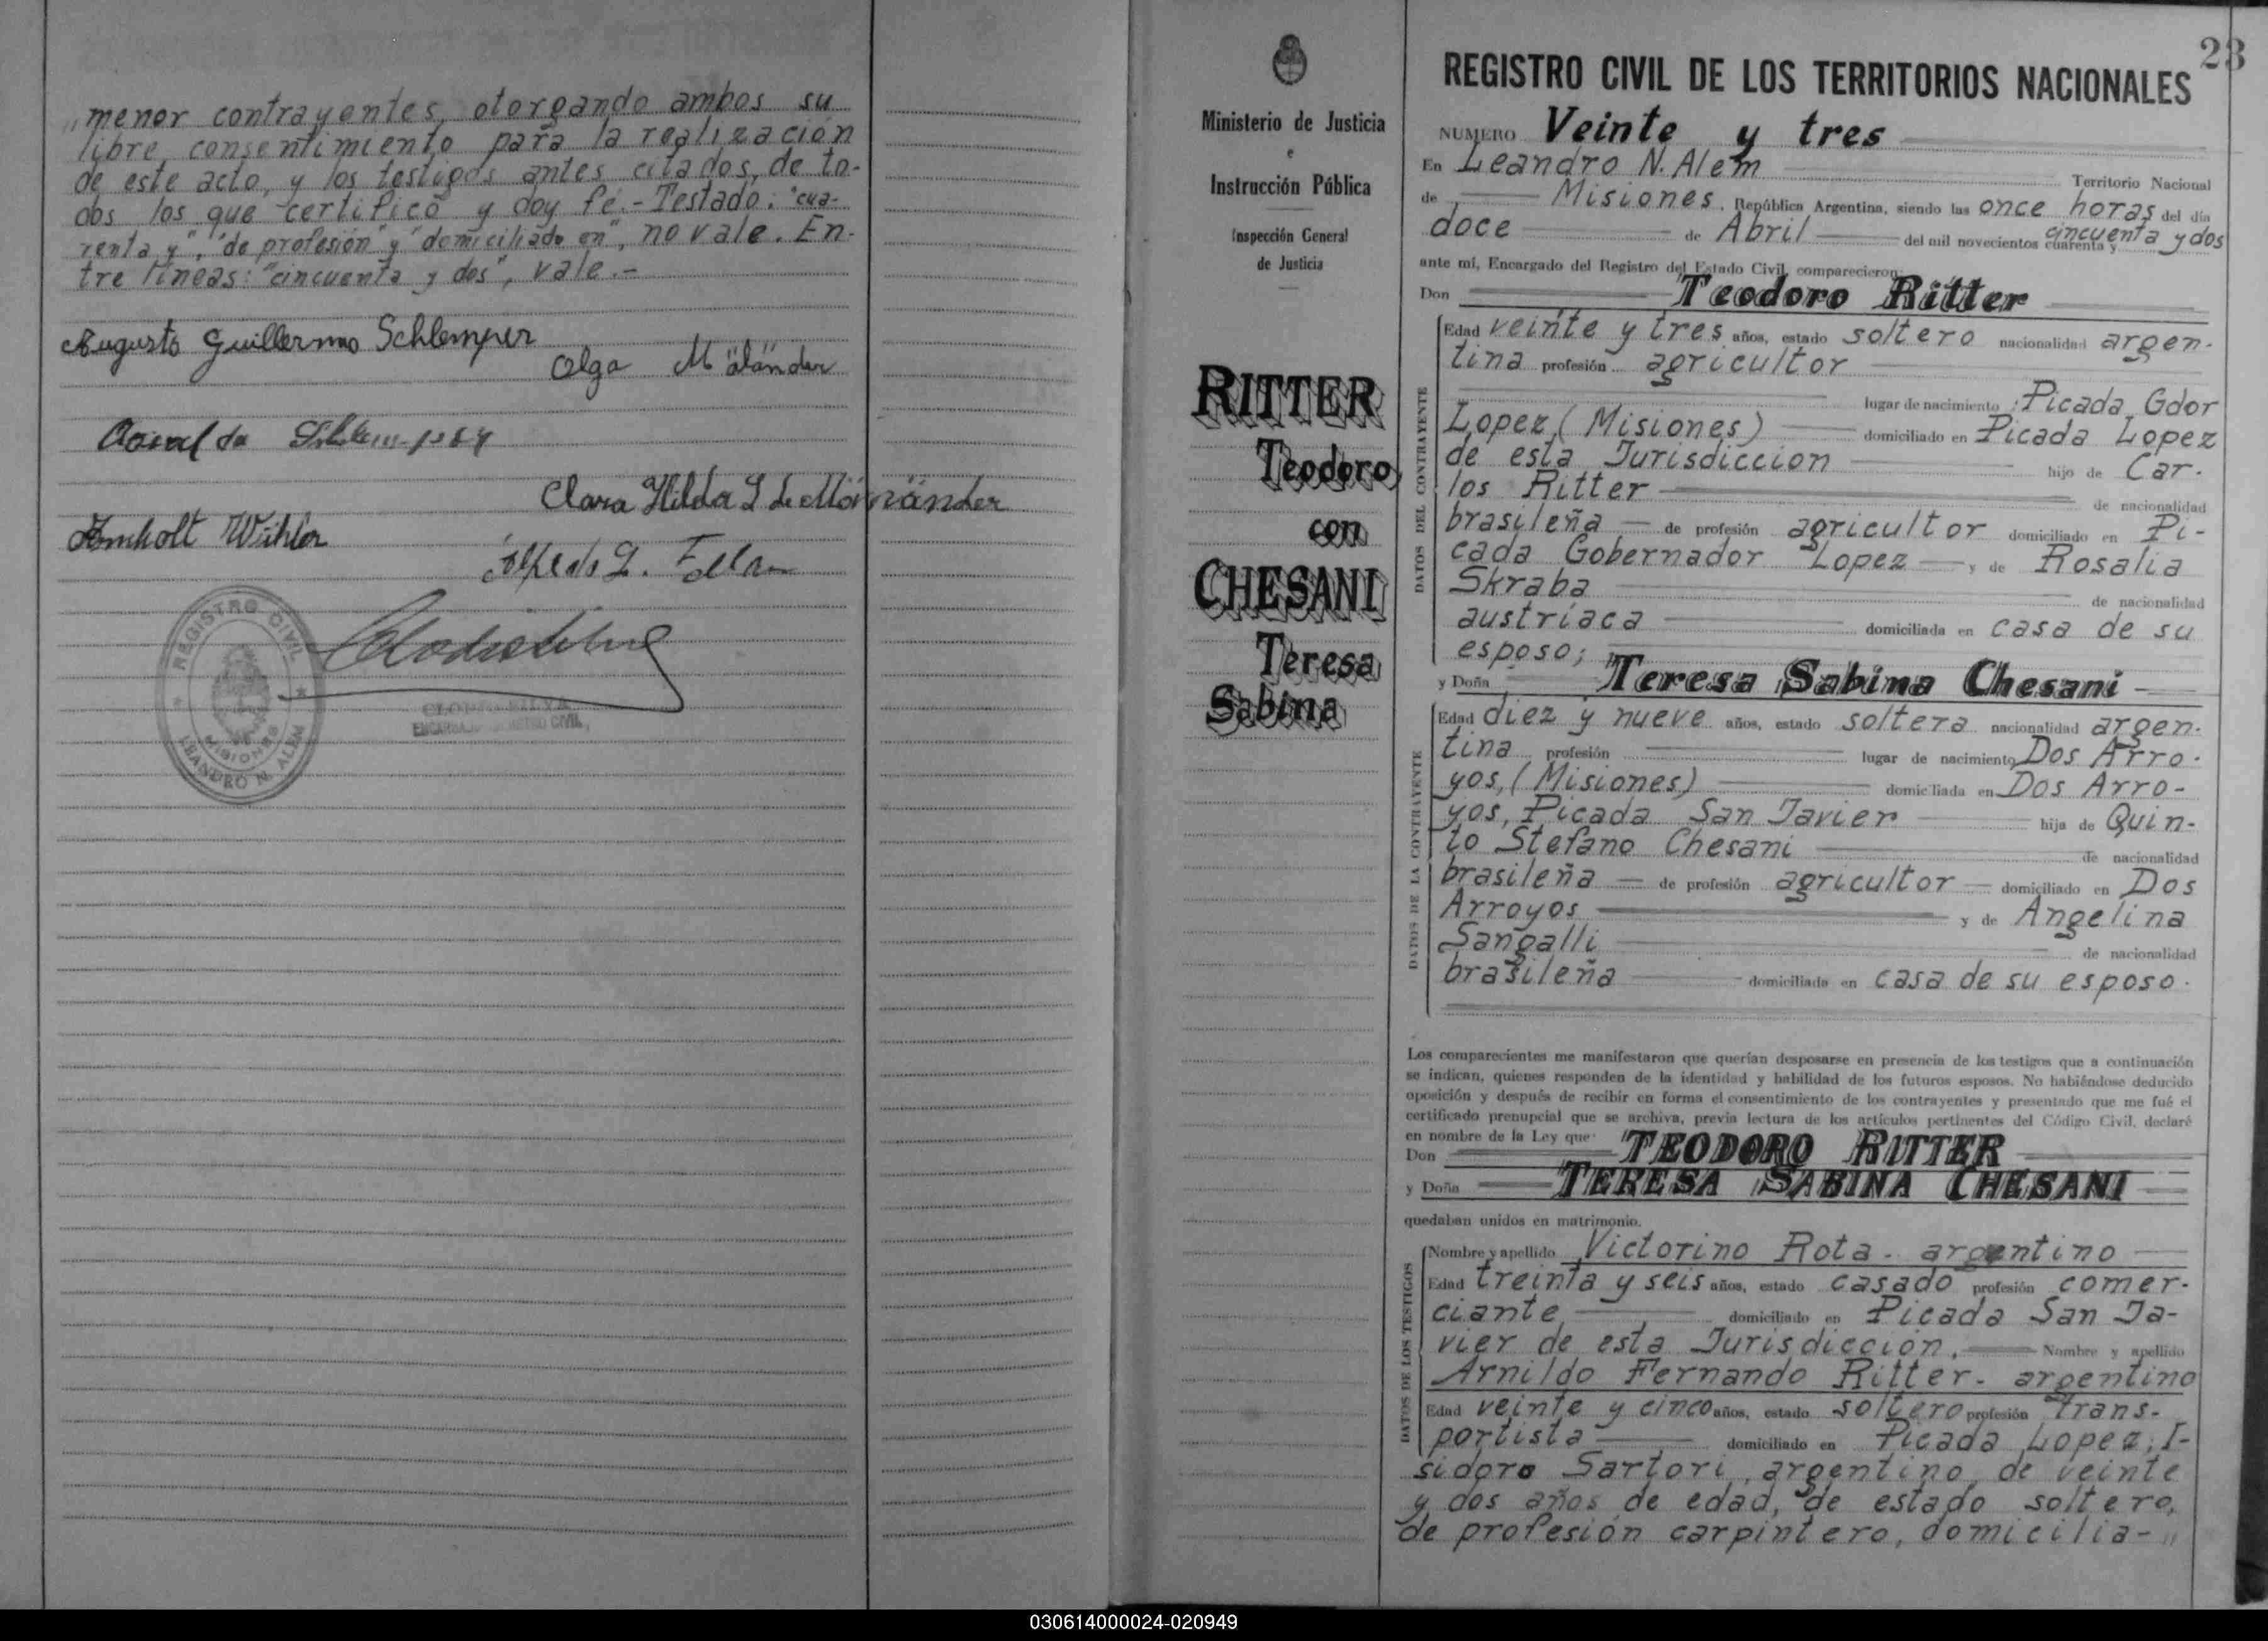 menor contrayentes, otorgando ambos su
libre consentimiento para la realización
de este acto, y los testigos antes citados, de to-
dos los que certifico y doy fé.- Testado: "cua-
renta y", "de profesión" y "domiciliado en", no vale. En-
tre líneas: "cincuenta y dos", vale.-
Augusto Guillermo Schlemper
Olga
Clara Hilda L de
Alfredo L.
REGISTRO CIVIL
MISIONES
LEANDRO N. ALEM
ENCARGADO REGISTRO CIVIL
Ministerio de Justicia
e
Instrucción Pública
Inspección General
de Justicia
RITTER
Teodoro,
con
CHESANI
Teresa
Sabina
23
REGISTRO CIVIL DE LOS TERRITORIOS NACIONALES
NUMERO Veinte y tres
En Leandro N. Alem Territorio Nacional
de Misiones, República Argentina, siendo las once horas del día
doce de Abril del mil novecientos cuarenta y cincuenta y dos
ante mí, Encargado del Registro del Estado Civil, comparecieron:
Don Teodoro Ritter
DATOS DEL CONTRAYENTE
Edad veinte y tres años, estado soltero nacionalidad argen-
tina profesión agricultor
lugar de nacimiento: Picada Gdor
Lopez (Misiones) domiciliado en Picada Lopez
de esta Jurisdiccion hijo de Car-
los Ritter de nacionalidad
brasileña de profesión agricultor domiciliado en Pi-
cada Gobernador Lopez y de Rosalia
Skraba de nacionalidad
austríaca domiciliada en casa de su
esposo;
y Doña Teresa Sabina Chesani
DATOS DE LA CONTRAYENTE
Edad diez y nueve años, estado soltera nacionalidad argen-
tina profesión lugar de nacimiento Dos Arro-
yos, (Misiones) domiciliada en Dos Arro-
yos, Picada San Javier hija de Quin-
to Stefano Chesani de nacionalidad
brasileña de profesión agricultor domiciliado en Dos
Arroyos y de Angelina
Sangalli de nacionalidad
brasileña domiciliada en casa de su esposo.
Los comparecientes me manifestaron que querían desposarse en presencia de los testigos que a continuación
se indican, quienes responden de la identidad y habilidad de los futuros esposos. No habiéndose deducido
oposición y después de recibir en forma el consentimiento de los contrayentes y presentado que me fué el
certificado prenupcial que se archiva, previa lectura de los artículos pertinentes del Código Civil, declaré
en nombre de la Ley que:
Don TEODORO RITTER
y Doña TERESA SABINA CHESANI
quedaban unidos en matrimonio.
DATOS DE LOS TESTIGOS
Nombre y apellido Victorino Rota - argentino
Edad treinta y seis años, estado casado profesión comer-
ciante domiciliado en Picada San Ja-
vier de esta Jurisdicción. Nombre y apellido
Arnildo Fernando Ritter - argentino
Edad veinte y cinco años, estado soltero profesión trans-
portista domiciliado en Picada Lopez; I-
sidoro Sartori, argentino, de veinte
y dos años de edad, de estado soltero,
de profesión carpintero, domicilia-"
030614000024-020949